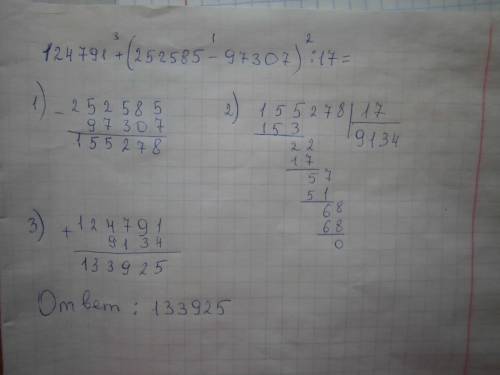 3 1 2
124791+(252585-97307):17=
1) -252585
97307
155278
2) 155278 | 17
153 9134
22
17
57
51
68
68
0
3) +124791
9134
133925
Ответ: 133925